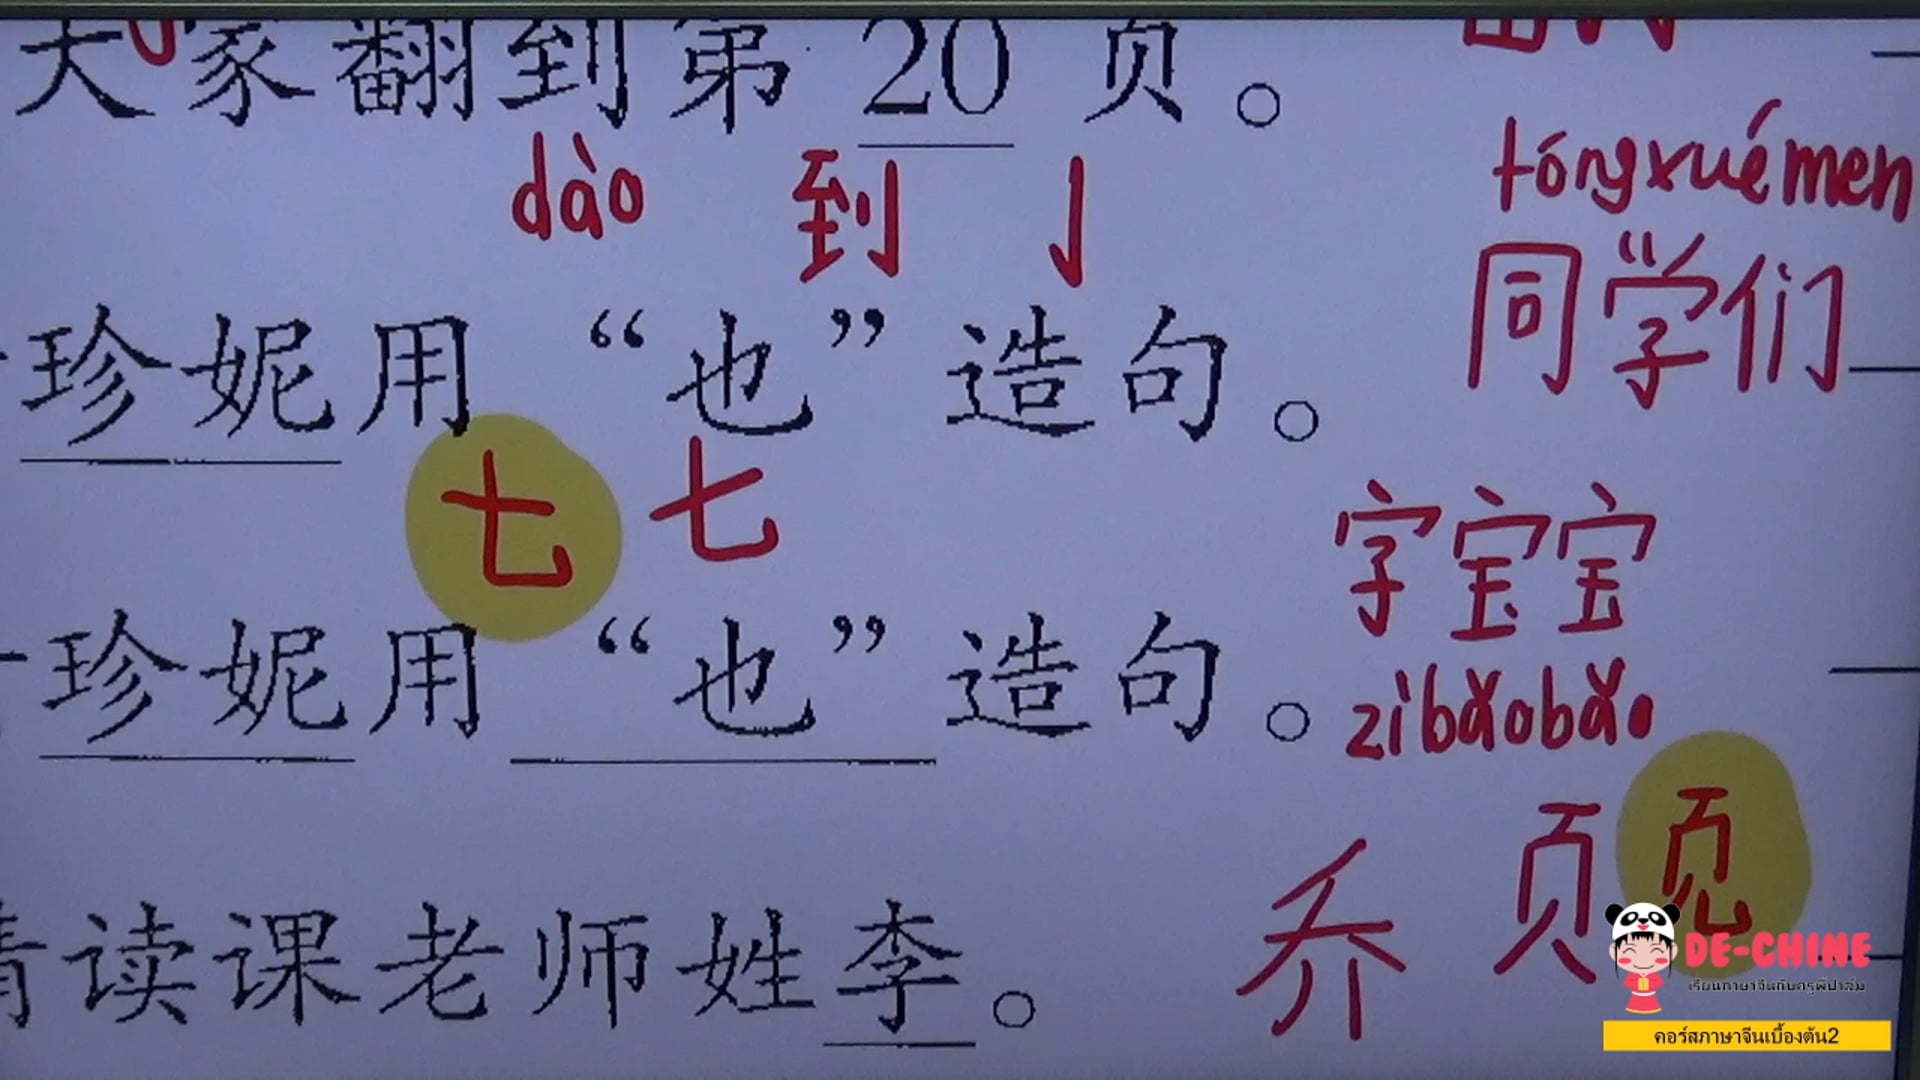 大家翻到第20页。
dào 到 亅
tóngxuémen
同学们
珍妮用“也”造句。
七 七
字宝宝
zìbǎobǎo
珍妮用“也”造句。
页
乔
读课老师姓李。
DE-CHINE
เรียนภาษาจีนกับครูพี่ปาล์ม
คอร์สภาษาจีนเบื้องต้น2